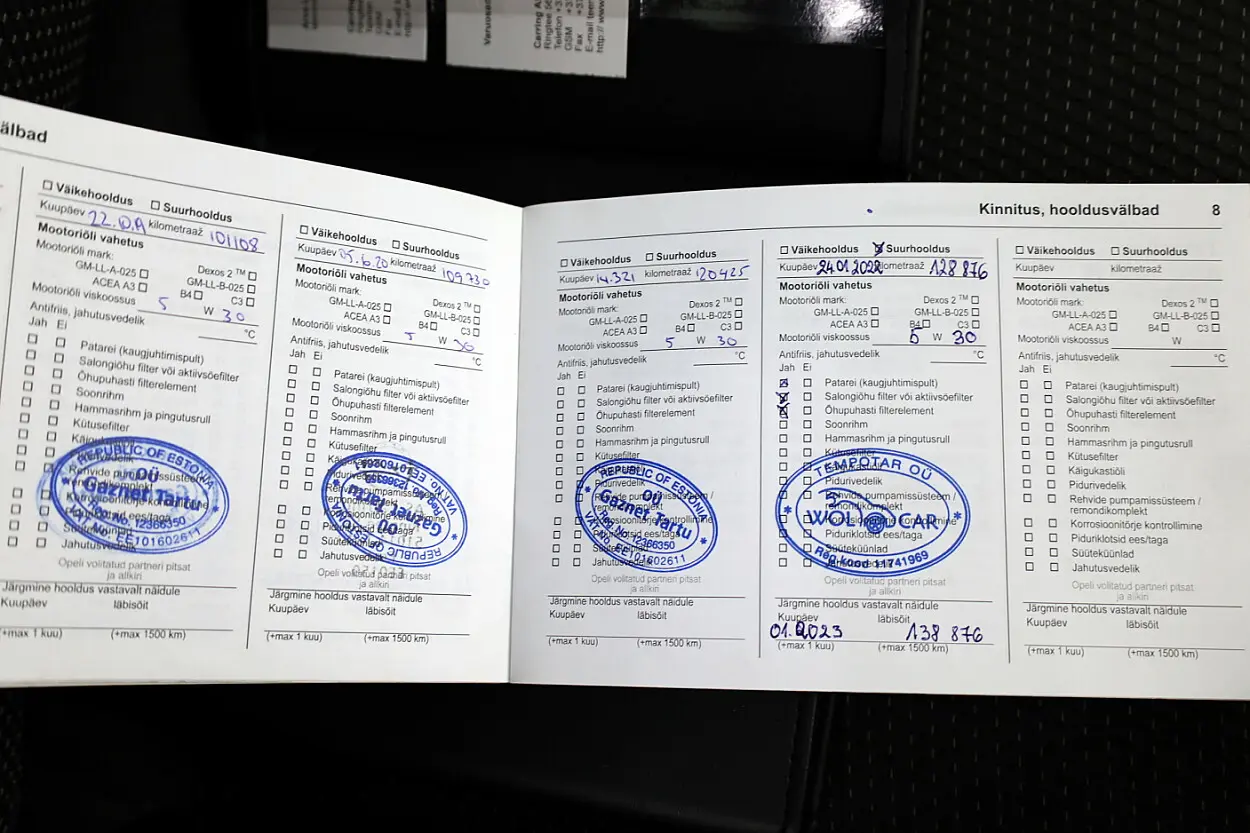 Varuosad
Carring A
Ringtee 56
Telefon +3
GSM +37
Fax +37
E-mail teen
http://www
älbad
Väikehooldus Suurhooldus
Kuupäev 22.0.A kilometraaž 101108
Mootoriõli vahetus
Mootoriõli mark:
Dexos 2 ™
GM-LL-A-025 GM-LL-B-025
ACEA A3 B4 C3
Mootoriõli viskoossus 5 W 30
Antifriis, jahutusvedelik °C
Jah Ei
Patarei (kaugjuhtimispult)
Salongiõhu filter või aktiivsöefilter
Õhupuhasti filterelement
Soonrihm
Hammasrihm ja pingutusrull
Kütusefilter
REPUBLIC OF ESTONIA
OÜ
Gaznet Tartu
Reg.No. 12366350
EE101602611
Jahutusvedelik
Opeli volitatud partneri pitsat
ja allkiri
Järgmine hooldus vastavalt näidule
Kuupäev läbisõit
(+max 1 kuu) (+max 1500 km)
Väikehooldus Suurhooldus
Kuupäev 05.6.20 kilometraaž 109730
Mootoriõli vahetus
Mootoriõli mark:
Dexos 2 ™
GM-LL-A-025 GM-LL-B-025
ACEA A3 B4 C3
Mootoriõli viskoossus 5 W 30
Antifriis, jahutusvedelik °C
Jah Ei
Patarei (kaugjuhtimispult)
Salongiõhu filter või aktiivsöefilter
Õhupuhasti filterelement
Soonrihm
Hammasrihm ja pingutusrull
Kütusefilter
Käigukastiõli
Pidurivedelik
REPUBLIC OF ESTONIA
OÜ
Gaznet Tartu
Piduriklotsid ees/taga
Süüteküünlad
Jahutusvedelik
Opeli volitatud partneri pitsat
ja allkiri
Järgmine hooldus vastavalt näidule
Kuupäev läbisõit
(+max 1 kuu) (+max 1500 km)
Kinnitus, hooldusvälbad 8
Väikehooldus Suurhooldus
Kuupäev 14.321 kilometraaž 120425
Mootoriõli vahetus
Mootoriõli mark:
Dexos 2 ™
GM-LL-A-025 GM-LL-B-025
ACEA A3 B4 C3
Mootoriõli viskoossus 5 W 30
Antifriis, jahutusvedelik °C
Jah Ei
Patarei (kaugjuhtimispult)
Salongiõhu filter või aktiivsöefilter
Õhupuhasti filterelement
Soonrihm
Hammasrihm ja pingutusrull
Kütusefilter
Käigukastiõli
Pidurivedelik
Rehvide pumpamissüsteem /
remondikomplekt
Korrosioonitõrje kontrollimine
Piduriklotsid ees/taga
Süüteküünlad
Jahutusvedelik
REPUBLIC OF ESTONIA
OÜ
Gaznet Tartu
Reg.No. 12366350
VAT No. EE101602611
Opeli volitatud partneri pitsat
ja allkiri
Järgmine hooldus vastavalt näidule
Kuupäev läbisõit
(+max 1 kuu) (+max 1500 km)
Väikehooldus Suurhooldus
Kuupäev 24.01 2022 kilometraaž 128 876
Mootoriõli vahetus
Mootoriõli mark:
Dexos 2 ™
GM-LL-A-025 GM-LL-B-025
ACEA A3 B4 C3
Mootoriõli viskoossus 5 W 30
Antifriis, jahutusvedelik °C
Jah Ei
Patarei (kaugjuhtimispult)
Salongiõhu filter või aktiivsöefilter
Õhupuhasti filterelement
Soonrihm
Hammasrihm ja pingutusrull
Kütusefilter
Käigukastiõli
Pidurivedelik
Rehvide pumpamissüsteem /
remondikomplekt
Korrosioonitõrje kontrollimine
Piduriklotsid ees/taga
Süüteküünlad
Jahutusvedelik
TEMPOTAR OÜ
CAR
Reg kood 11741969
Opeli volitatud partneri pitsat
ja allkiri
Järgmine hooldus vastavalt näidule
Kuupäev läbisõit
01.2023 138 876
(+max 1 kuu) (+max 1500 km)
Väikehooldus Suurhooldus
Kuupäev kilometraaž
Mootoriõli vahetus
Mootoriõli mark:
Dexos 2 ™
GM-LL-A-025 GM-LL-B-025
ACEA A3 B4 C3
Mootoriõli viskoossus W
Antifriis, jahutusvedelik °C
Jah Ei
Patarei (kaugjuhtimispult)
Salongiõhu filter või aktiivsöefilter
Õhupuhasti filterelement
Soonrihm
Hammasrihm ja pingutusrull
Kütusefilter
Käigukastiõli
Pidurivedelik
Rehvide pumpamissüsteem /
remondikomplekt
Korrosioonitõrje kontrollimine
Piduriklotsid ees/taga
Süüteküünlad
Jahutusvedelik
Opeli volitatud partneri pitsat
ja allkiri
Järgmine hooldus vastavalt näidule
Kuupäev läbisõit
(+max 1 kuu) (+max 1500 km)